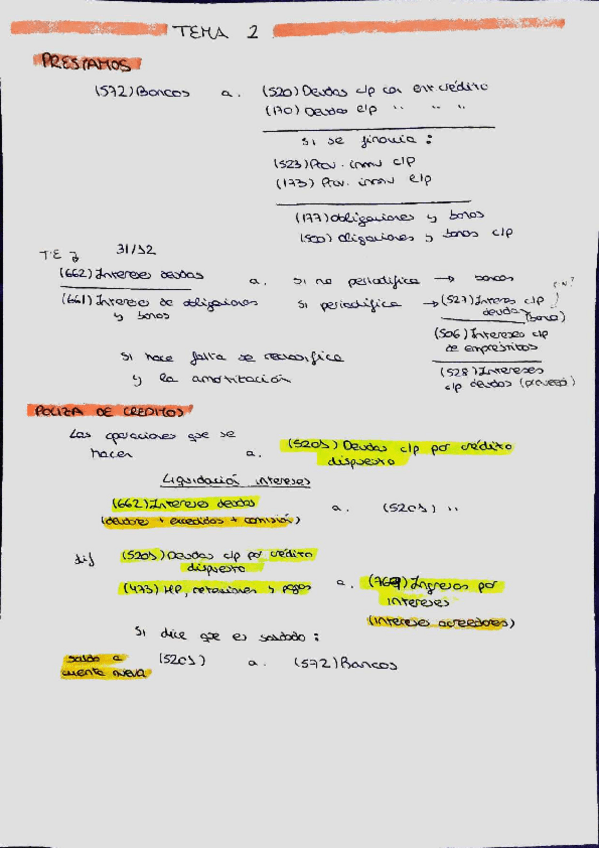 TEMA 2
PRESTAMOS
(572) Bancos a. (520) Deudas c/p con ent crédito
(170) Deudas e/p " " "
si se financia:
(523) Prov. inmv c/p
(173) Prov. inmv e/p
(177) obligaciones y bonos
(500) obligaciones y bonos c/p
T.E y 31/12
(662) Intereses deudas a. si no periodifica → bancos
(661) Intereses de obligaciones y bonos si periodifica → (527) Intereses c/p deudas (banco)
(506) Intereses c/p de empréstitos
(528) Intereses c/p deudas (proveed)
si hace falta se reclasifica
y la amortización
POLIZA DE CREDITOS
Las operaciones que se hacen a. (5201) Deudas c/p por crédito dispuesto
Liquidación intereses
(662) Intereses deudas a. (5201) "
(deudores + excedidos + comisión)
dif (5201) Deudas c/p por crédito dispuesto
(473) HP, retenciones y pagos a. (769) Ingresos por intereses
(intereses acreedores)
Si dice que es saldado:
saldo a cuenta nueva (5201) a. (572) Bancos